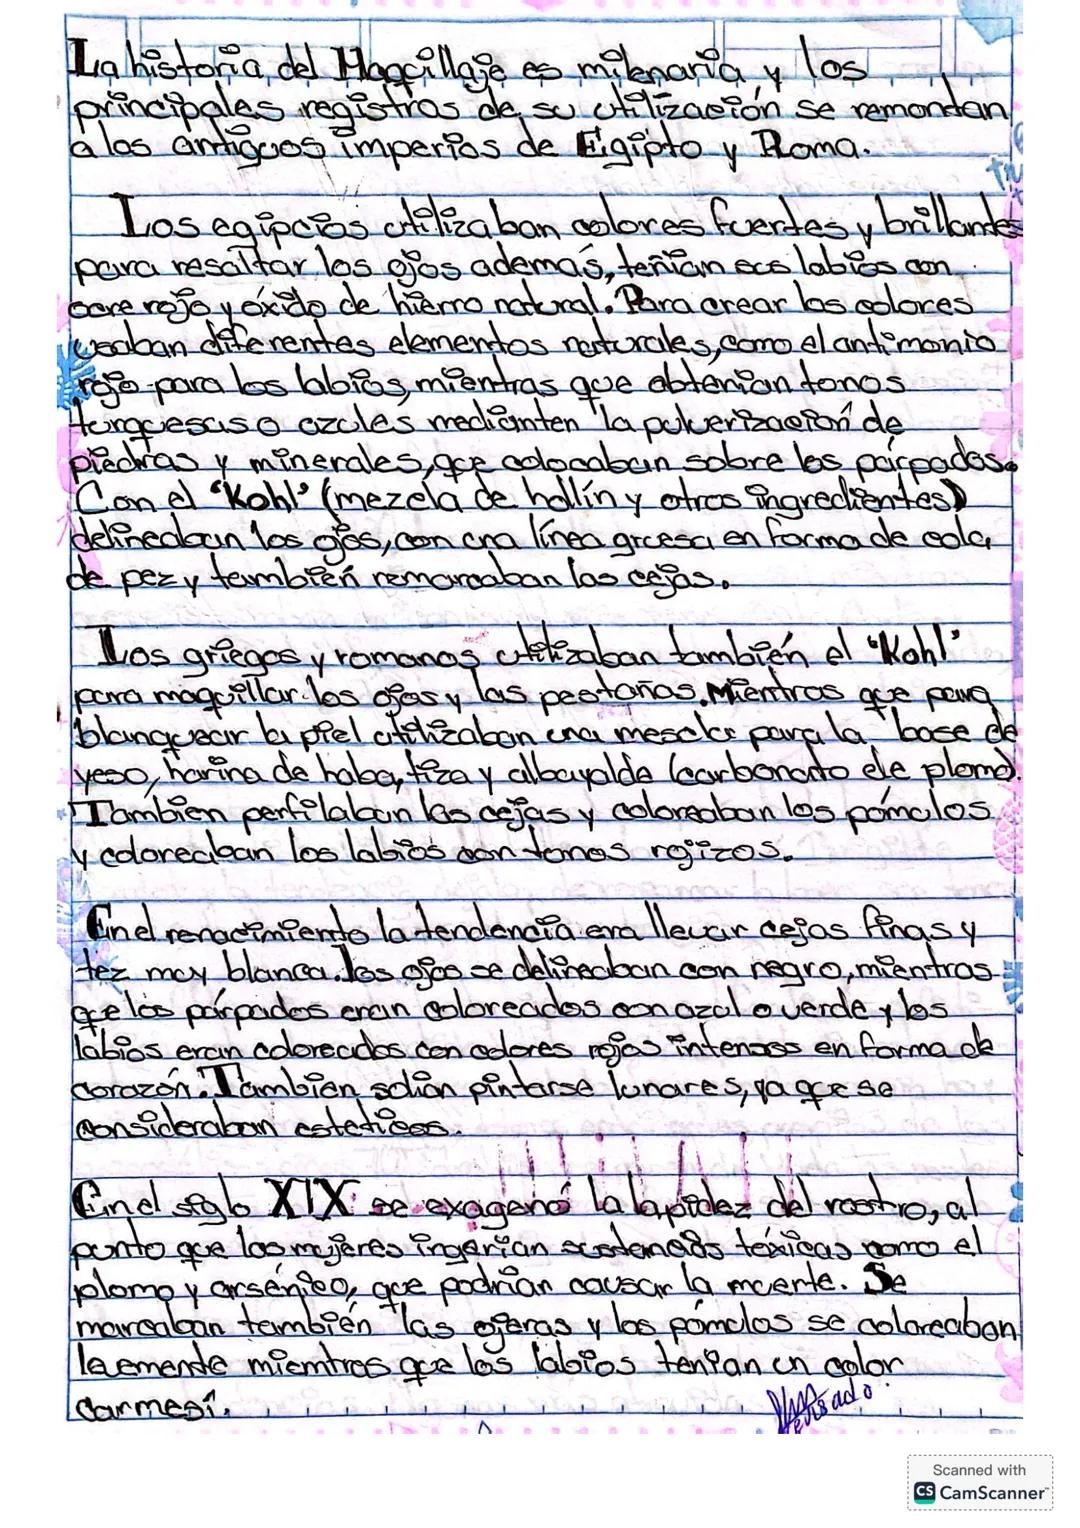 La historia del Maqcillaje es milenaria y los
principales registros de su utilización se remontan
a los antiguos imperios de Egipto y Roma.
Los egipcios utilizaban colores fuertes y brillantes
para resaltar los ojos además, teñian sus labios con
ocre rojo y óxido de hierro natural. Para crear los colores
usaban diferentes elementos naturales, como el antimonio
rojo para los labios, mientras que obtenian tonos
turquesas o azules medianten la pulverización de
piedras y minerales, que colocaban sobre los párpados.
Con el "Kohl" (mezcla de hollín y otros ingredientes)
delineaban los ojos, con una línea gruesa en forma de cola
de pez y también remarcaban las cejas.
Los griegos y romanos utilizaban también el "Kohl"
para maquillar los ojos y las pestañas. Mientras que para
blanquear la piel utilizaban una mescla para la base de
yeso, harina de haba, tiza y albayalde (carbonato de plomo).
Tambien perfilaban las cejas y coloreaban los pómulos
y coloreaban los labios con tonos rojizos.
En el renacimiento la tendencia era llevar cejas finas y
tez muy blanca. Los ojos se delineaban con negro, mientras
que los párpados eran coloreados con azul o verde y los
labios eran coloreados con colores rojos intensos en forma de
corazón. Tambien solian pintarse lunares, ya que se
consideraban esteticos.
En el siglo XIX se exageró la lapidez del rostro, al
punto que las mujeres ingerian sustancias tóxicas como el
plomo y arsénico, que podrian causar la muerte. Se
marcaban también las ojeras y los pómulos se coloreaban
levemente mientras que los labios tenian un color
carmesí.
Revisado
Scanned with
CS CamScanner